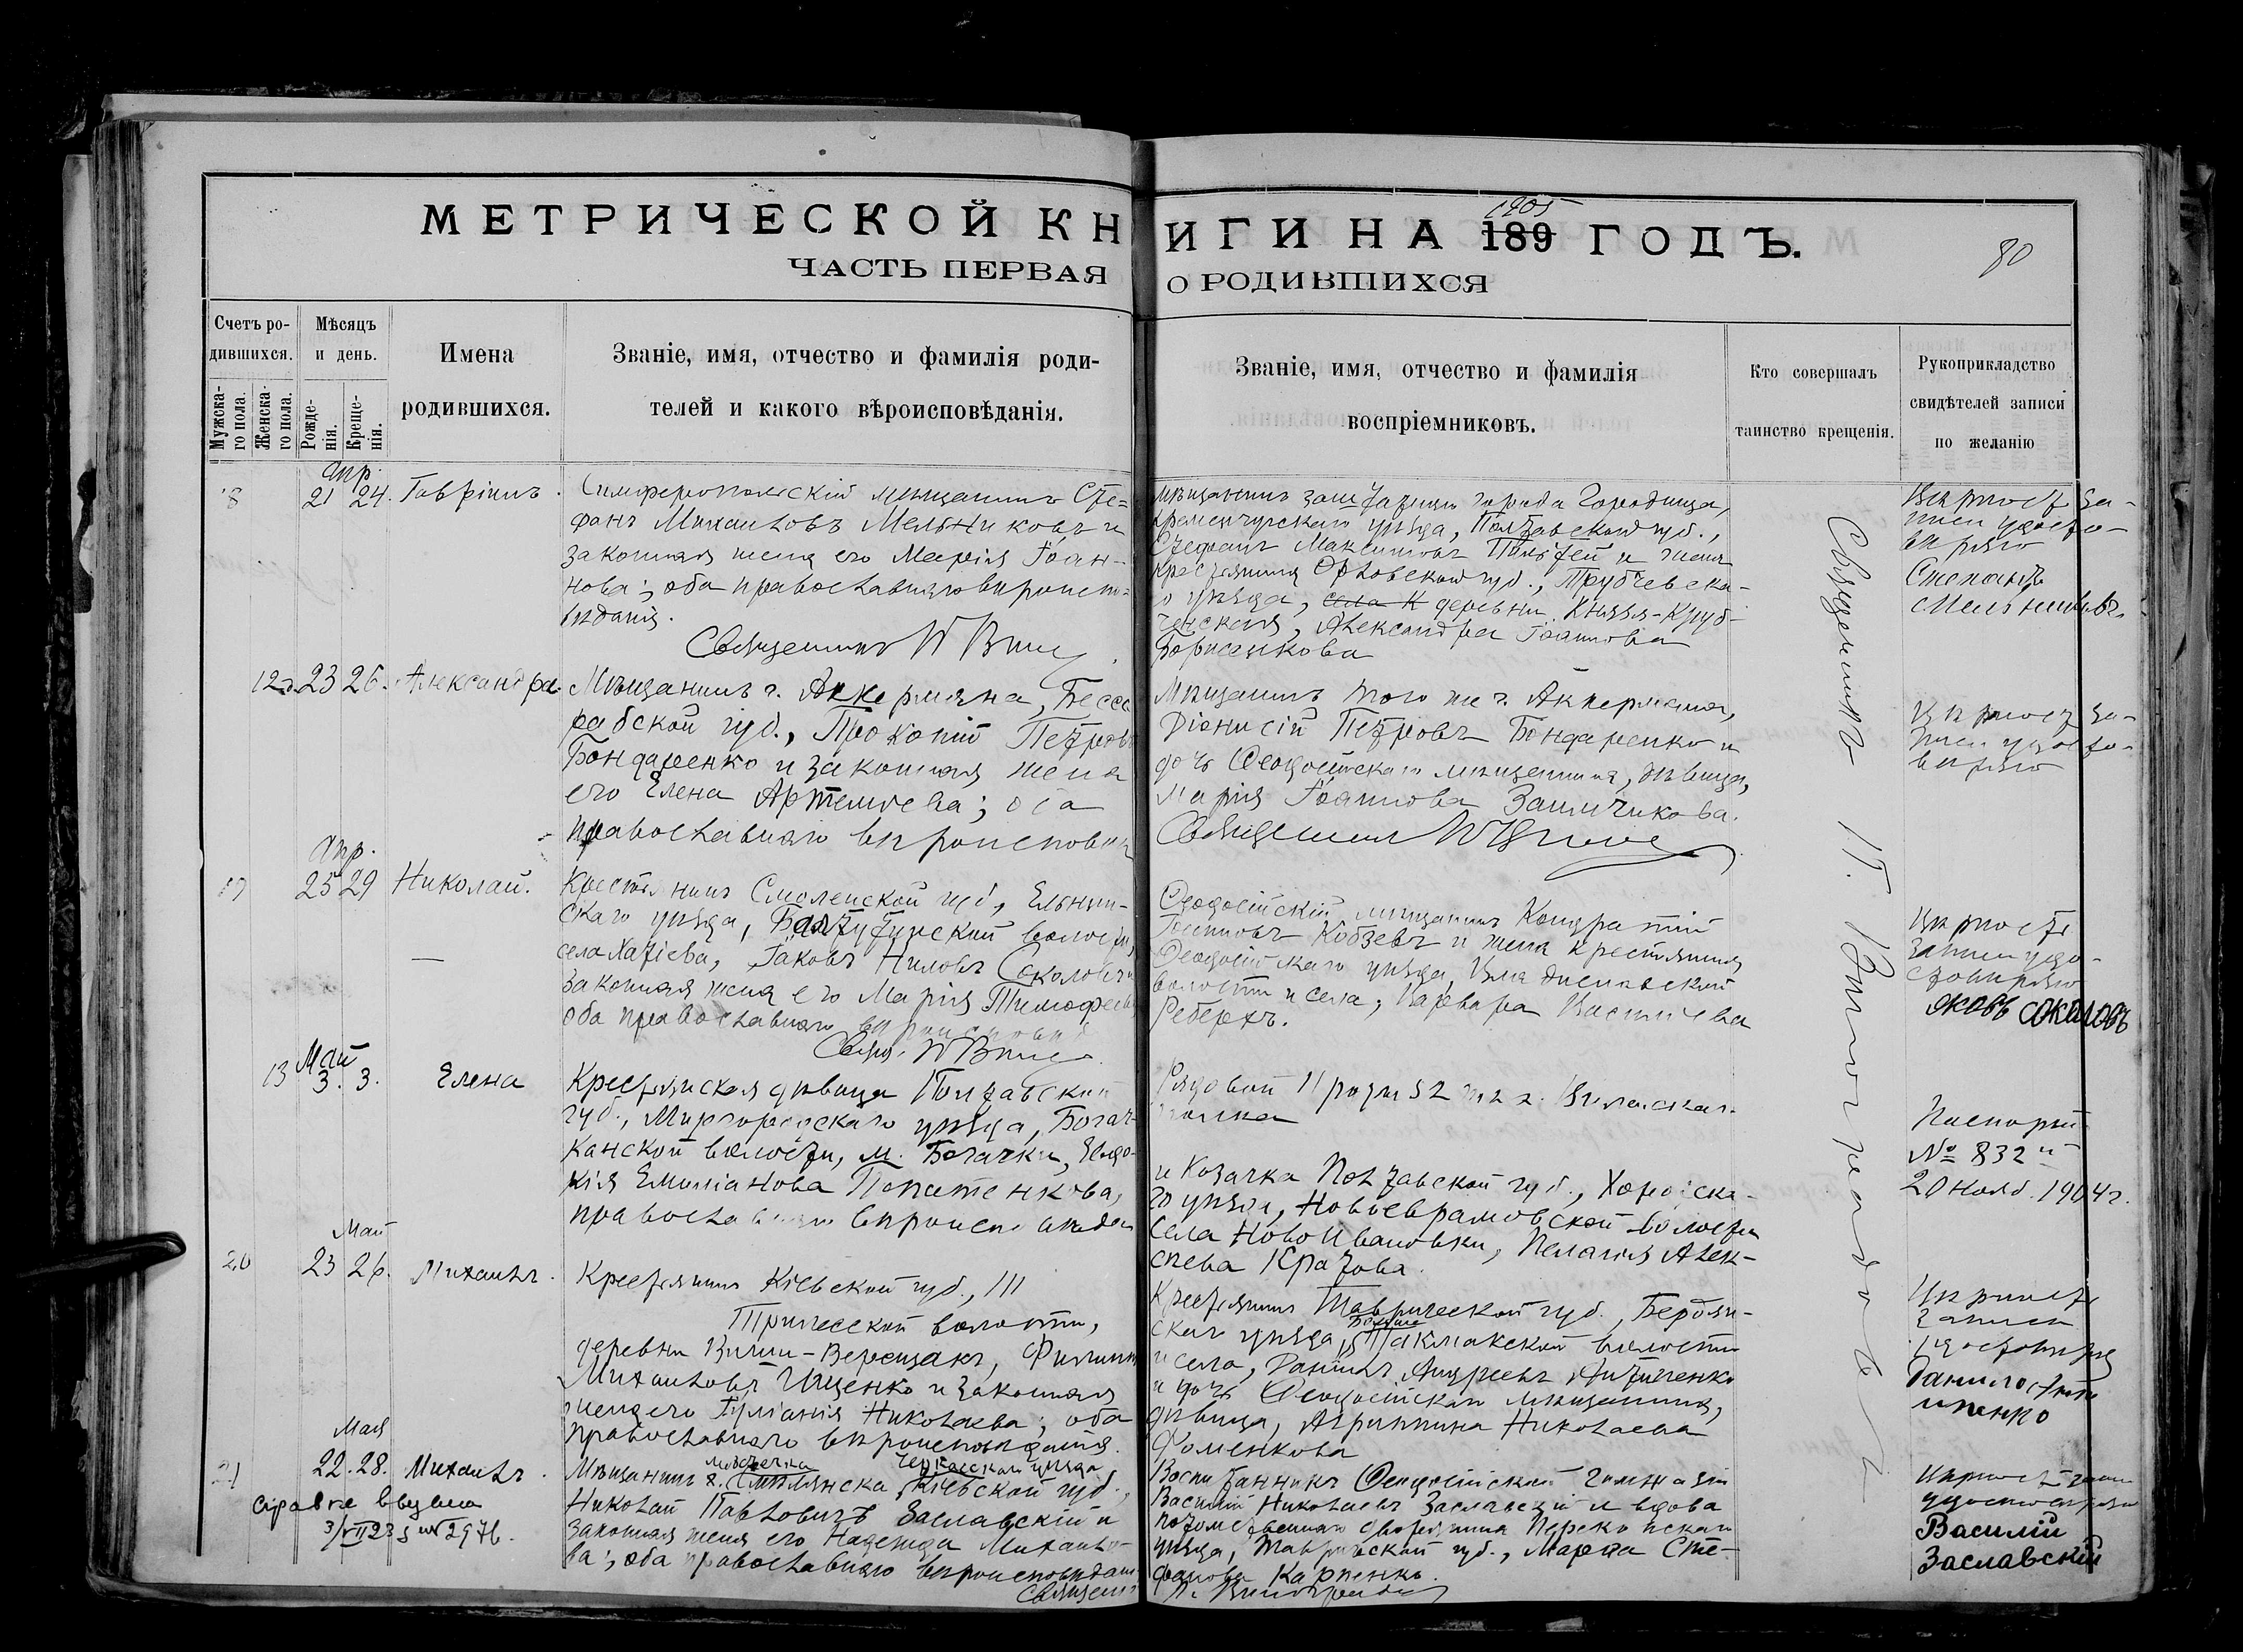 МЕТРИЧЕСКОЙ КНИГИ НА 189 ГОДЪ.
1905
80
ЧАСТЬ ПЕРВАЯ О РОДИВШИХСЯ
Счетъ родившихся.
Мужскаго пола.
Женскаго пола.
Мѣсяцъ и день.
Рожденія.
Крещенія.
Имена
родившихся.
Званіе, имя, отчество и фамилія роди-
телей и какого вѣроисповѣданія.
Званіе, имя, отчество и фамилія
воспріемниковъ.
Кто совершалъ
таинство крещенія.
Рукоприкладство
свидѣтелей записи
по желанію
Апр.
21 24. Гавріилъ.
Симферопольскій мѣщанинъ Сте-
фанъ Михаиловъ Мельниковъ и
законная жена его Марія Іоан-
нова; оба православнаго вѣроиспо-
вѣданія.
Священникъ
мѣщанинъ заштатнаго города Городища,
Кременчугскаго уѣзда, Полтавской губ.,
Стефанъ Максимовъ и жена
крестьянина Орловской губ., Трубчевска-
го уѣзда, села К деревни
Александра Іоаннова
Борисенкова
Вѣрность за-
писи удосто-
вѣряю
Степанъ
Мельниковъ
12 23 26. Александра.
Мѣщанинъ г. Аккермана, Бесса
рабской губ., Прокопій Петровъ
Бондаренко и законная жена
его Елена Артемьева; оба
православнаго вѣроисповѣд
Мѣщанинъ того же г. Аккермана,
Діонисій Петровъ Бондаренко и
дочь Ѳеодосійскаго мѣщанина, дѣвица,
Марія Іоаннова
Священникъ
Вѣрность за-
писи удосто-
вѣряю
Апр.
19 25 29 Николай.
Крестьянинъ Смоленской губ., Ельнин-
скаго уѣзда, волости,
села Іаковъ Ниловъ Соколовъ и
законная жена его Марія Тимофеева
оба православнаго вѣроисповѣд
Свящ.
Ѳеодосійскій мѣщанинъ Кондратій
Іоанновъ Кобзевъ и жена крестьянина
Ѳеодосійскаго уѣзда, Владиславской
волости и села, Варвара Васильева
Вѣрность
записи удо-
стовѣряю
Яковъ Соколовъ
Май
13 3. 3. Елена
Крестьянская дѣвица Полтавской
губ., Миргородскаго уѣзда, Богач-
канской волости, м. Богачки, Евдо-
кія Емиліанова
православнаго вѣроисповѣдан
Рядовой 11 роты 52 Виленскаго
полка
и козачка Полтавской губ., Хорольска-
го уѣзда, Новоаврамовской волости
села Ново Ивановки, Пелагія Алек-
сѣева
Паспортъ
№ 832
20 нояб. 1904 г.
Май
20 23 26. Михаилъ.
Крестьянинъ Кіевской губ.,
волости,
деревни Филиппъ
Михаиловъ Ищенко и законная
жена его Іуліанія Николаева; оба
православнаго вѣроисповѣданія.
Крестьянинъ Таврической губ., Бердян-
скаго уѣзда, Больше Такмакской волости
и села, Даніилъ Андреевъ
и дочь Ѳеодосійскаго мѣщанина,
дѣвица, Агриппина Николаева
Фоменкова
Вѣрность
записи
удостовѣряю
Данило
Мая
21 22. 28. Михаилъ.
Справка выдана
Мѣщанинъ мѣстечка Черкасскаго уѣзда, Кіевской губ.,
Николай Павловичъ Заславскій и
законная жена его Надежда Михаило-
ва; оба православнаго вѣроисповѣдан
Священ
Воспитанникъ Ѳеодосійской гимназіи
Василій Николаевъ Заславскій и вдова
потомственнаго дворянина Перекопскаго
уѣзда, Таврической губ., Марѳа Сте-
фанова Карпенко.
удостовѣряю
Василій
Заславскій
Священникъ